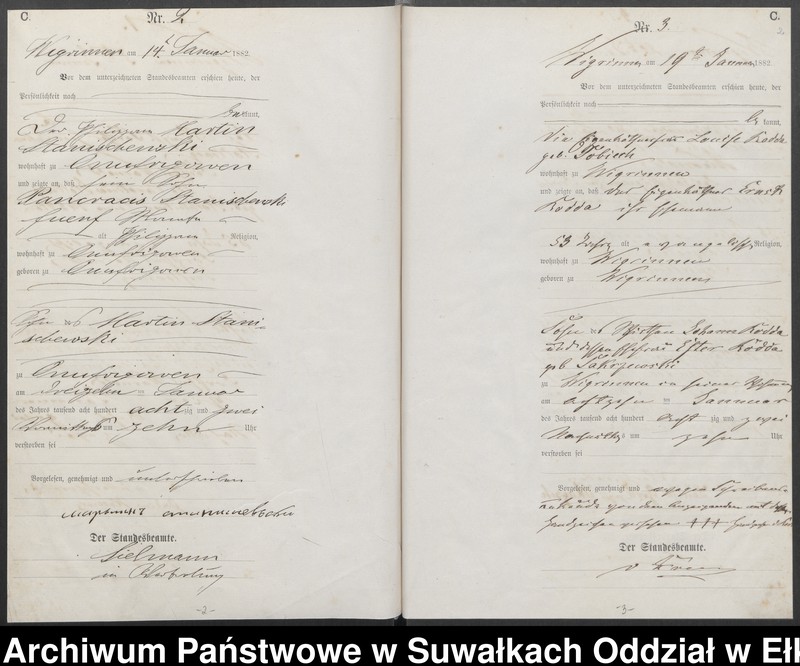 C.
Nr. 2
Wigrinnen am 14t Januar 1882
Vor dem unterzeichneten Standesbeamten erschien heute, der
Persönlichkeit nach
kannt,
Der Philippon Martin
Stanischewski
wohnhaft zu Onufrigowen
und zeigte an, daß sein Sohn
Pancracis Stanischewski
fuenf Monate
alt Philippon Religion,
wohnhaft zu Onufrigowen
geboren zu Onufrigowen
Sohn des Martin Stani-
schewski
zu Onufrigowen
am dreizehn Januar
des Jahres tausend acht hundert achtzig und zwei
Vormittags um zehn Uhr
verstorben sei
Vorgelesen, genehmigt und unterschrieben
Der Standesbeamte.
Sielmann
in Vertretung
-2-
C.
Nr. 3.
Wigrinnen am 19ten Januar 1882
Vor dem unterzeichneten Standesbeamten erschien heute, der
Persönlichkeit nach
kannt,
die Louise Kodda
geb.
wohnhaft zu Wigrinnen
und zeigte an, daß der Eigenkäthner Ernst
Kodda ihr Ehemann
53 Jahre alt evangelisch Religion,
wohnhaft zu Wigrinnen
geboren zu Wigrinnen
Sohn des Johann Kodda
und dessen Ehefrau Ester Kodda
geb Sakrzewski
zu Wigrinnen in seiner Wohnung
am achtzehn Januar
des Jahres tausend acht hundert acht zig und zwei
Nachmittags um zehn Uhr
verstorben sei
Vorgelesen, genehmigt und wegen Schreibens
Handzeichen +++
Der Standesbeamte.
-3-
Archiwum Państwowe w Suwałkach Oddział w Ełk